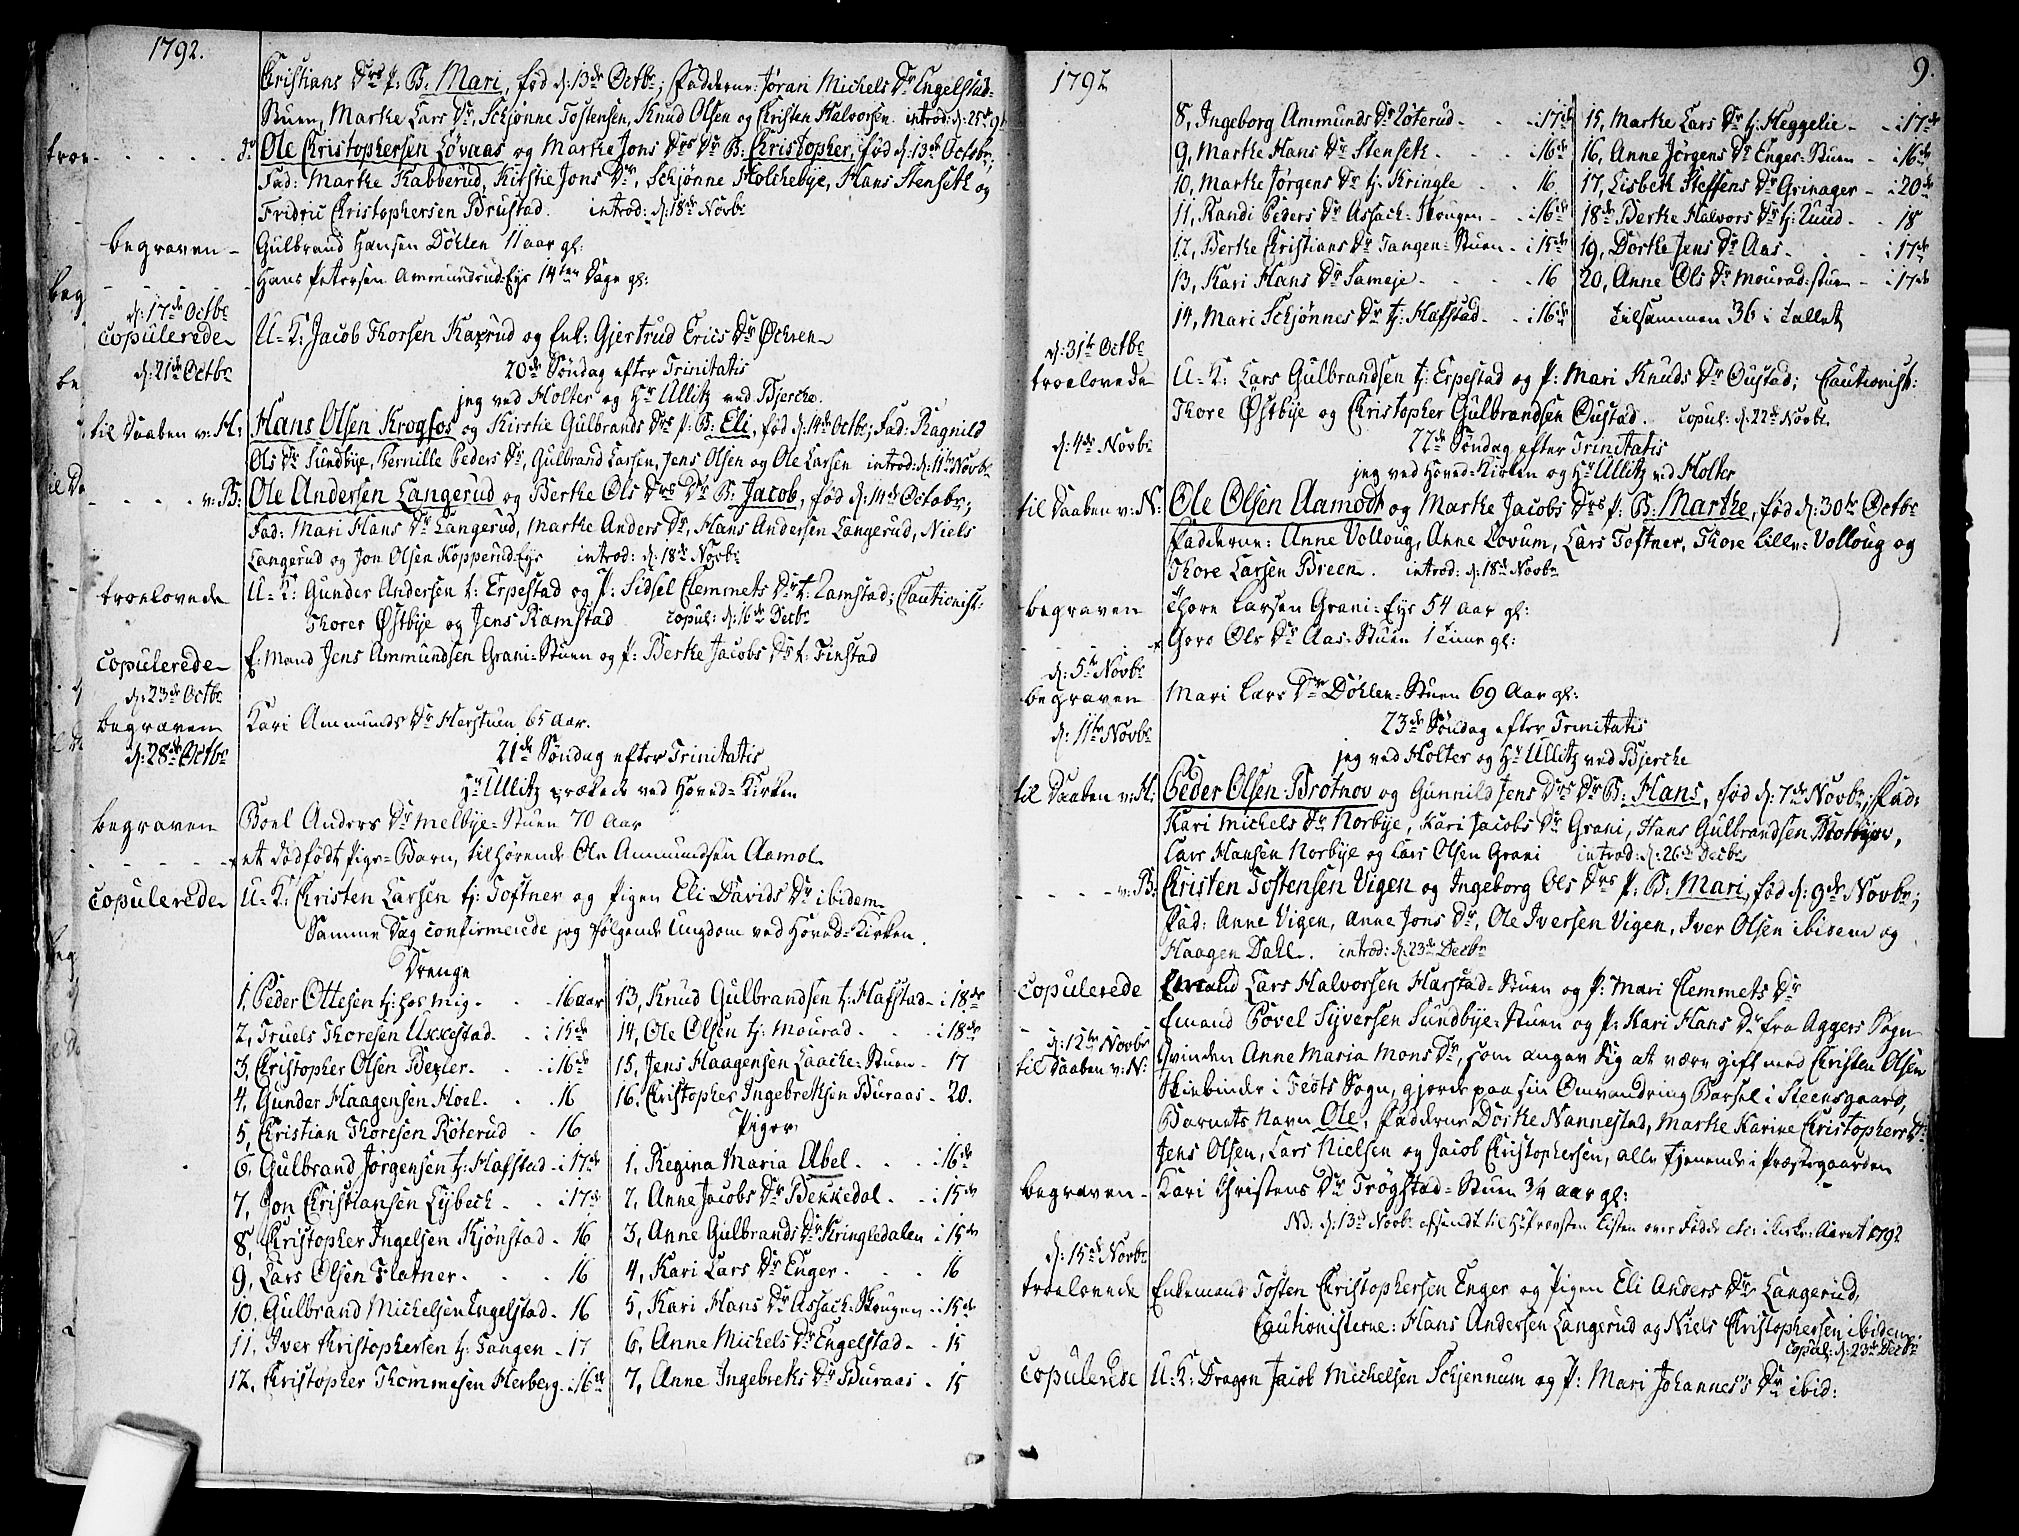 1792.
Christians Drs p: B: Mari, fød d: 13de Octbr; Fadderne: Joran Michels Dr Engelstad-
Stuen, Marthe Lars Dr, Schjønne Tostensen, Knud Olsen og Christen Halvorsen. introd: d: 25de
Ole Christophersen Løvaas og Marthe Jons Drs Dr B: Christopher, fød d: 13de Octobr;
Fad: Marthe Kabberud, Kirstie Jons Dr, Schjønne Holchebye, Hans Stenseth og
Fridric Christophersen Brustad. introd: d: 18de Novbr
begraven - Gulbrand Hansen Døhlen 11 aar gl:
Hans Petersen Ammundrud-Eye 14ten Dage gl:
d: 17de Octbr
copulerede U-K: Jacob Thorsen Kaxrud og Enk: Gjertrud Erics Dr Øchren
d: 21de Octbr 20de Søndag efter Trinitatis
jeg ved Holter og Hr Ullitz ved Bjerche.
til Daaben v: H: Hans Olsen Krogfos og Kirstie Gulbrands Drs p: B: Eli, fød d: 14de Octbr; Fad: Ragnild
Ols Dr Sundbye, Pernille Peders Dr, Gulbrand Larsen, Jens Olsen og Ole Larsen introd: d: 11te Novbr
v: B: Ole Andersen Langerud og Berthe Ols Drs Dr B: Jacob, fød d: 14de Octobr;
Fad: Mari Hans Dr Langerud, Marthe Anders Dr, Hans Andersen Langerud, Niels
Langerud og Jon Olsen Kopperud-Eye introd: d: 18de Novbr
troelovede U-K: Gunder Andersen t: Erpestad og P: Sidsel Clemmets Dr t: Ramstad; Cautionist:
Thorer Østbye og Jens Ramstad copul: d: 16de Decbr
copulerede E: Mand Jens Ammundsen Grani-Stuen og p: Berthe Jacobs Dr t: Finstad
d: 23de Octbr
begraven Kari Ammunds Dr Herstuen 65 Aar.
d: 28de Octbr 21de Søndag efter Trinitatis
Hr Ullitz prækede ved Hoved-Kirken
begraven Boel Anders Dr Melbye-Stuen 70 Aar
et dødfødt Pige-Barn, tilhørende Ole Ammundsen Aamol
copulerede U-K: Christen Larsen tj: Toftner og Pigen Eli Davids Dr ibidem
Samme Dag confirmerede jeg følgende Ungdom ved Hoved-Kirken.
Drenge
1, Peder Ottesen tj: hos mig. 16 aar
2, Truels Thoresen Ukkestad. i 15de
3, Christopher Olsen Bexler. i 16de
4, Gunder Haagensen Hoel. 16
5, Christian Thoresen Røterud 16
6, Gulbrand Jørgensen tj: Hafstad i 17de
7, Jon Christiansen Lybech i 17de
8, Christopher Ingelsen Kjønstad 16
9, Lars Olsen Flatner. 16
10, Gulbrand Michelsen Engelstad 16
11, Iver Christophersen tj: Tangen 17
12, Christopher Thommesen Herberg i 16de
13, Knud Gulbrandsen tj: Hafstad i 18de
14, Ole Olsen tj: Mourad i 18de
15, Jens Haagensen Laache-Stuen 17
16, Christopher Ingebrethsen Buraas 20.
Piger
1, Regina Maria Abel i 16de
2, Anne Jacobs Dr Bekkedal i 15de
3, Anne Gulbrands Dr Kringledalen i 15de
4, Kari Lars Dr Enger 16
5, Kari Hans Dr Assach-Skougen i 15de
6, Anne Michels Dr Engelstad 15
7, Anne Ingebreths Dr Buraas 15
1792
9.
8, Ingeborg Ammunds Dr Røterud i 17de
9, Marthe Hans Dr Stenseth i 16de
10, Marthe Jørgens Dr tj: Kringle 16
11, Randi Peders Dr Assach-Skougen i 16de
12, Berthe Christians Dr Tangen-Stuen i 15de
13, Kari Hans Dr Sameje 16
14, Mari Schjønnes Dr tj: Hafstad i 16de
15, Marthe Lars Dr tj: Heggelie i 17de
16, Anne Jørgens Dr Enges-Stuen i 16de
17, Lisbeth Steffens Dr Grinager i 20de
18de Berthe Halvors Dr tj: Ruud 18
19, Dorthe Jens Dr Aas i 17de
20, Anne Ols Dr Mourad-Stuen i 17de
tilsammen 36 i Tallet
d: 31te Octbr
troelovede U-K: Lars Gulbrandsen tj: Erpestad og P: Mari Knuds Dr Oustad; Cautionist:
Thore Østbye og Christopher Gulbrandsen Oustad. copul: d: 22de Novbr
d: 4de Novbr 22de Søndag efter Trinitatis
jeg ved Hoved-Kirken og Hr Ullitz ved Holter
til Daaben v: N: Ole Olsen Aamodt og Marthe Jacobs Drs p: B: Marthe, fød d: 30te Octbr
Fadderne: Anne Volloug, Anne Lovum, Lars Toftner, Thore Lille-Volloug og
Thore Larsen Breen. introd: d: 18de Novbr
begraven Thore Larsen Grani-Eye 54 Aar gl:
Goro Ols Dr Aas-Stuen 1 Time gl:
d: 5te Novbr
begraven Mari Lars Dr Døhlen-Stuen 69 Aar gl:
d: 11te Novbr 23de Søndag efter Trinitatis
jeg ved Holter og Hr Ullitz ved Bjerche
til Daaben v: H: Peder Olsen Brotnov og Gunnild Jens Drs Dr B: Hans, fød d: 7de Novbr; Fad:
Kari Michels Dr Norbye, Kari Jacobs Dr Grani, Hans Gulbrandsen
Lars Hansen Norbye og Lars Olsen Grani introd: d: 26de Decbr
v: B: Christen Tostensen Vigen og Ingeborg Ols Drs p: B: Mari, fød d: 9de Novbr;
Fad: Anne Vigen, Anne Jons Dr, Ole Iversen Vigen, Iver Olsen ibidem og
Haagen Dahl. introd: d: 23de Decbr
copulerede Emand Lars Halvorsen Harstad-Stuen og P: Mari Clemmets Dr
Emand Povel Syversen Sundbye-Stuen og P: Kari Hans Dr fra Aggers Sogn
d: 12te Novbr
til Daaben v: N: Qvinden Anne Maria Mons Dr, som angav sig at være gift med Christen Olsen
Skinbinder i Feots Sogn, gjorde paa sin Omvandring Barsel i Steensgaard,
Barnets Navn Ole, Fadderne Dorthe Nannestad, Marthe Karine Christophers Dr
Jens Olsen, Lars Nielsen og Jacob Christophersen, alle tjenende i Præstegaarden
begraven Kari Christens Dr Trøgstad-Stuen 3/4 aar gl:
NB: d: 13de Novbr afsendt til Hr Provsten Listen over Fødde etc: i Kirke-Aaret 1792
d: 15de Novbr
troelovede Enkemand Tosten Christophersen Enger og Pigen Eli Anders Dr Langerud,
Cautionisterne: Hans Andersen Langerud og Niels Christophersen ibidem.
copul: d: 23de Decbr
copulerede U-K: Dragon Jacob Michelsen Schjennum og P: Mari Johannes's Dr ibid: